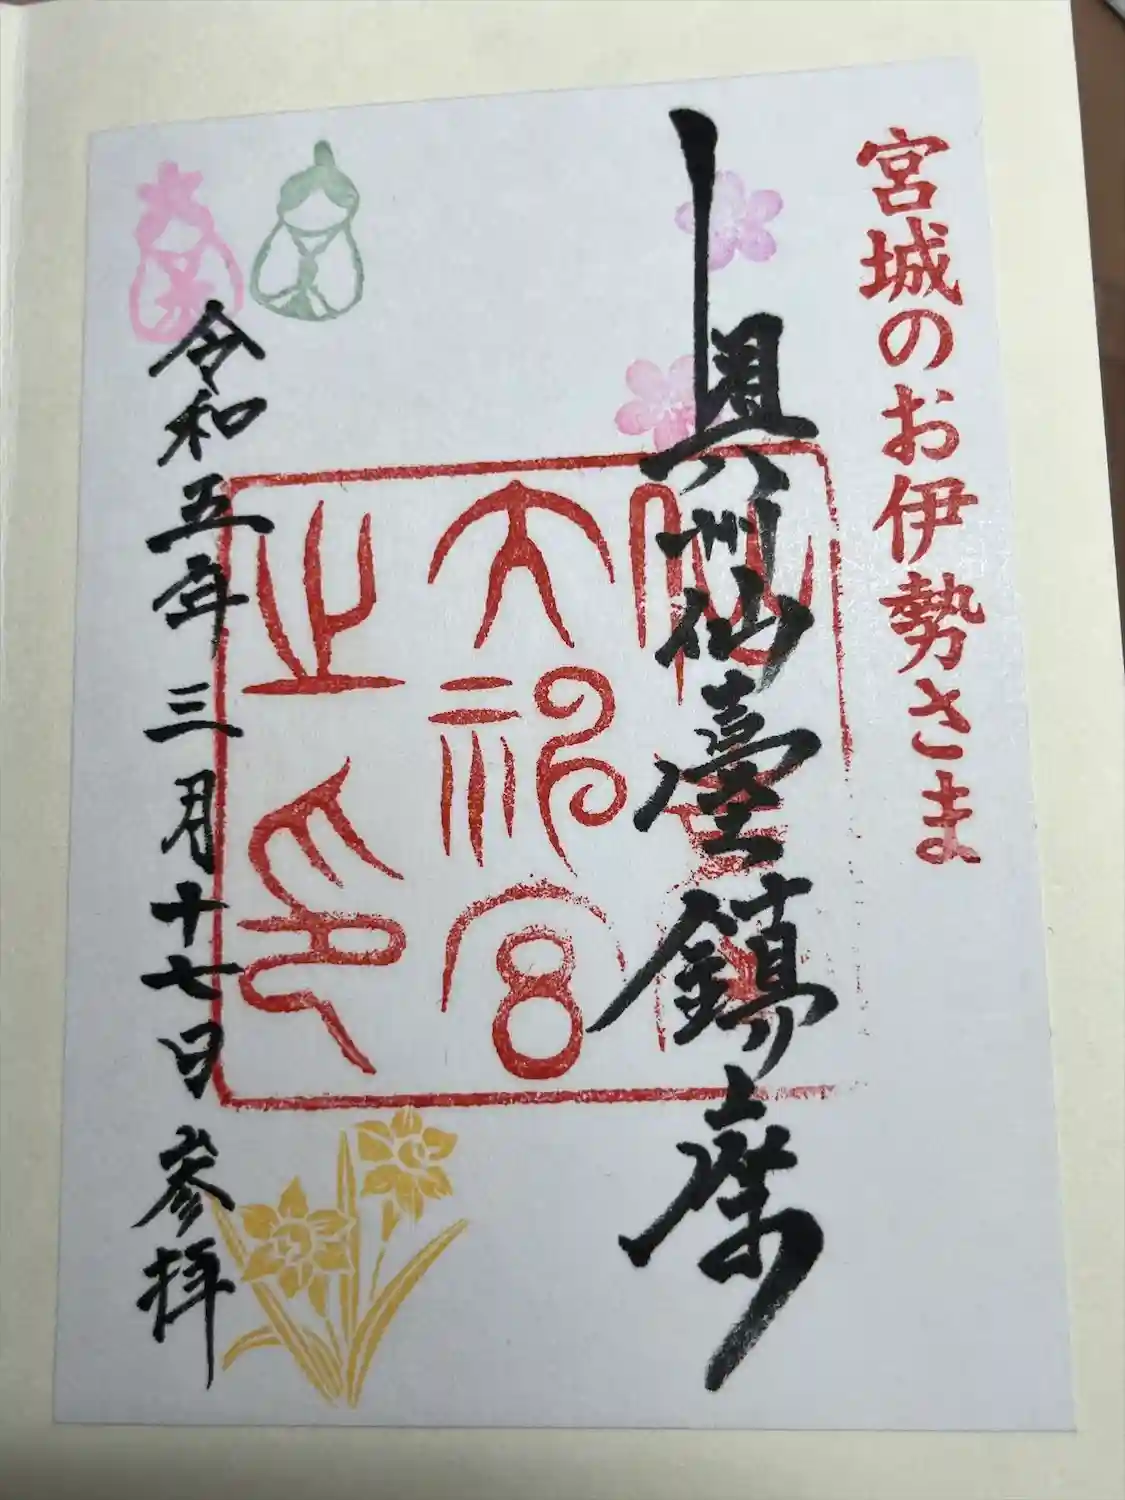 宮城のお伊勢さま
奥州仙臺鎮座
大神宮
之印
令和五年三月十七日 参拝